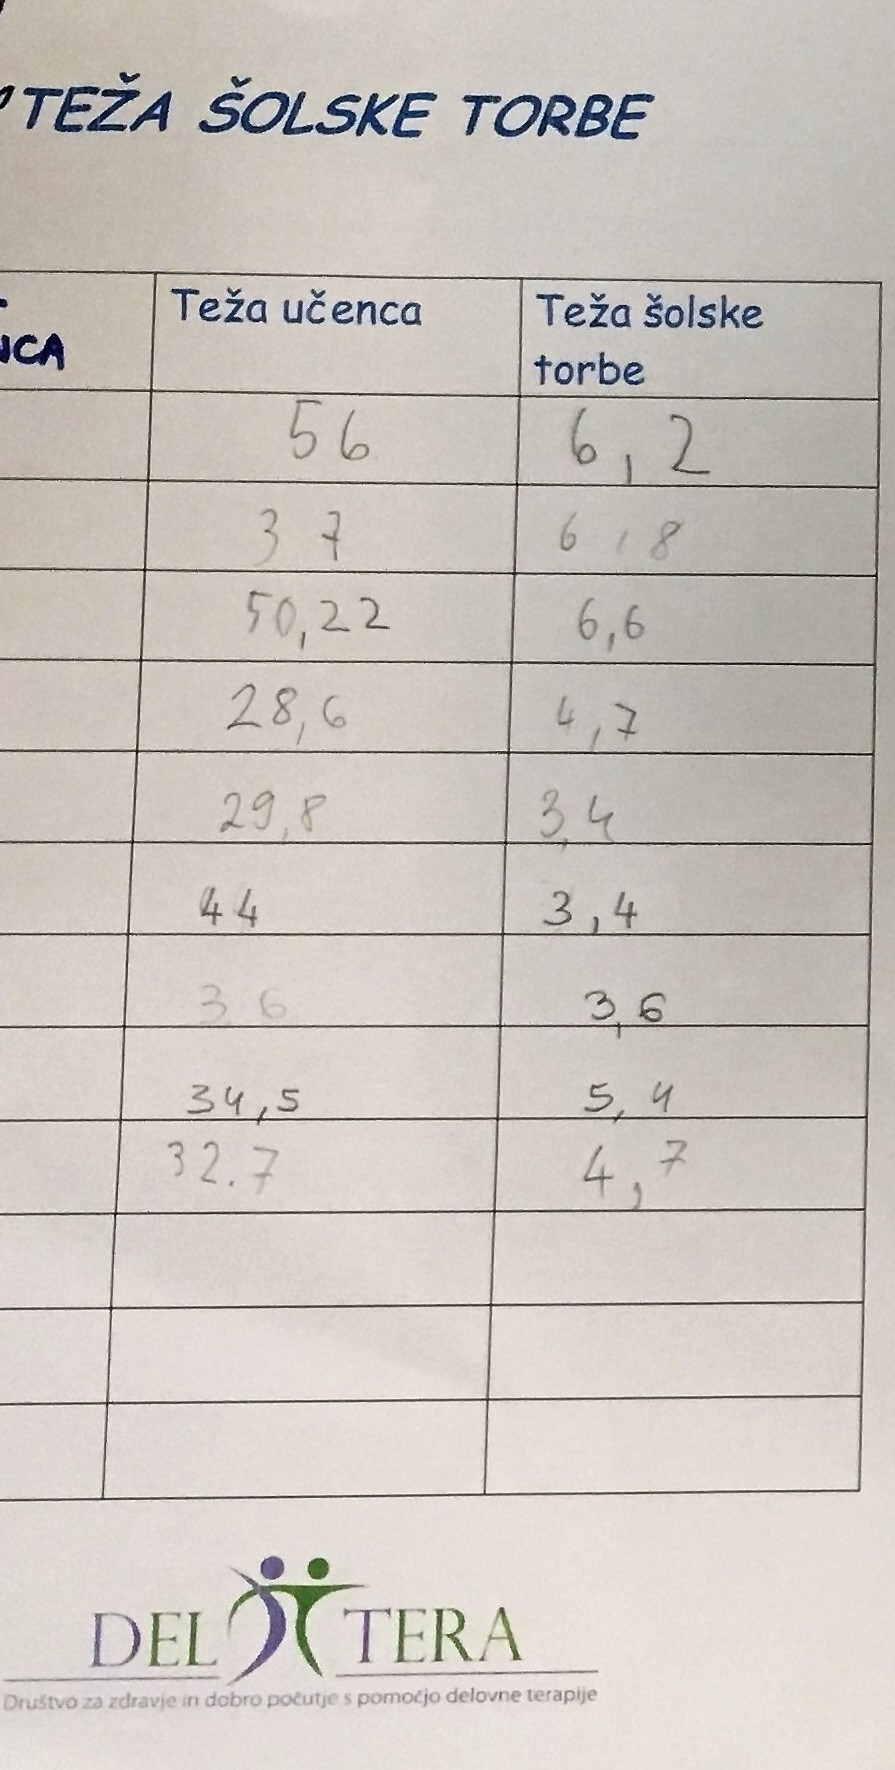 TEŽA ŠOLSKE TORBE
Teža učenca Teža šolske
torbe
56 6,2
37 6,8
50,22 6,6
28,6 4,7
29,8 3,4
44 3,4
36 3,6
34,5 5,4
32.7 4,7
DEL TERA
Društvo za zdravje in dobro počutje s pomočjo delovne terapije